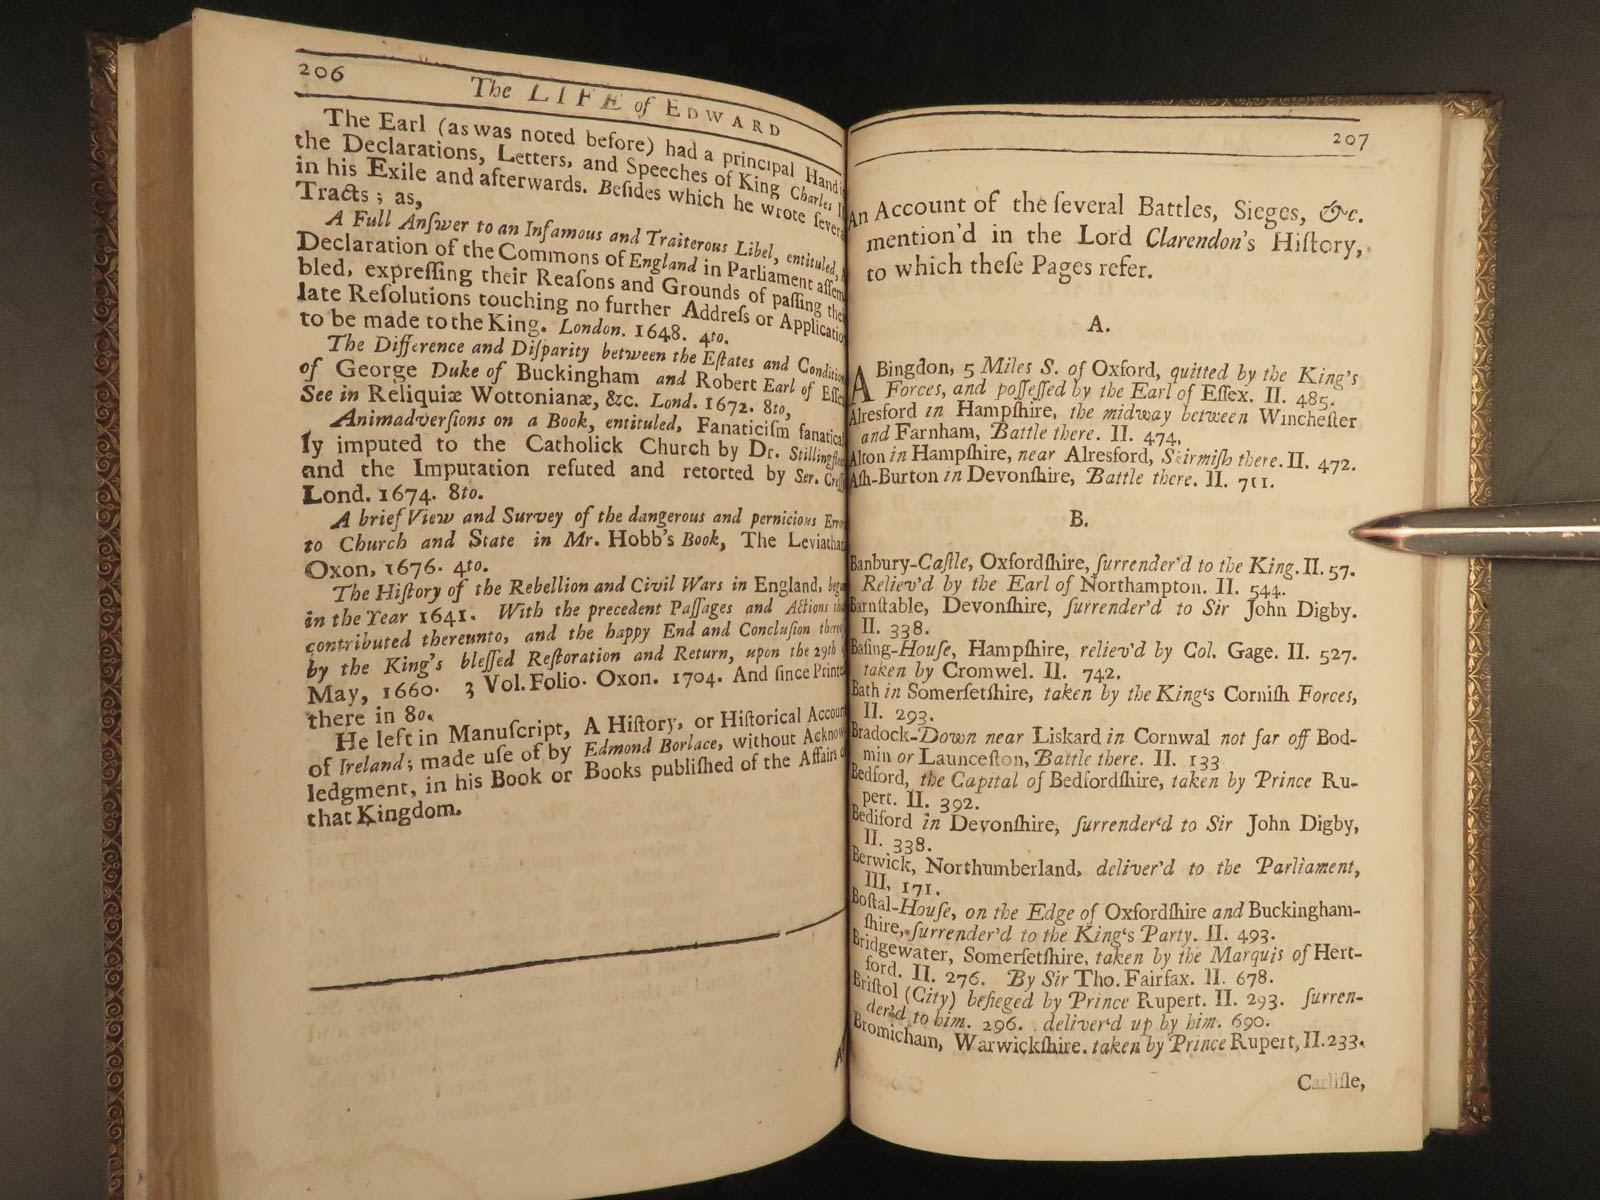 206
The LIFE of EDWARD
The Earl (as was noted before) had a principal Hand
the Declarations, Letters, and Speeches of King Charles II
in his Exile and afterwards. Beſides which he wrote ſevera
Tracts; as,
A Full Anſwer to an Infamous and Traiterous Libel, entituled,
Declaration of the Commons of England in Parliament aſſem
bled, expreſſing their Reaſons and Grounds of paſſing the
late Reſolutions touching no further Addreſs or Applicatio
to be made to the King. London. 1648. 4to.
The Difference and Diſparity between the Eſtates and Condition
of George Duke of Buckingham and Robert Earl of Eſſe
See in Reliquiæ Wottonianæ, &c. Lond. 1672. 8to,
Animadverſions on a Book, entituled, Fanaticiſm fanatical
ly imputed to the Catholick Church by Dr. Stillingflee
and the Imputation refuted and retorted by Ser. Creſſ
Lond. 1674. 8to.
A brief View and Survey of the dangerous and pernicious Erro
to Church and State in Mr. Hobb's Book, The Leviathan
Oxon, 1676. 4to.
The Hiſtory of the Rebellion and Civil Wars in England, begu
in the Year 1641. With the precedent Paſſages and Actions tha
contributed thereunto, and the happy End and Concluſion thereo
by the King's bleſſed Reſtoration and Return, upon the 29th
May, 1660. 3 Vol. Folio. Oxon. 1704. And ſince Printed
there in 8o.
He left in Manuſcript, A Hiſtory, or Hiſtorical Account
of Ireland; made uſe of by Edmond Borlace, without Acknow
ledgment, in his Book or Books publiſhed of the Affairs o
that Kingdom.
207
An Account of the ſeveral Battles, Sieges, &c.
mention'd in the Lord Clarendon's Hiſtory,
to which theſe Pages refer.
A.
ABingdon, 5 Miles S. of Oxford, quitted by the King's
Forces, and poſſeſſed by the Earl of Eſſex. II. 485.
Alresford in Hampſhire, the midway between Wincheſter
and Farnham, Battle there. II. 474,
Alton in Hampſhire, near Alresford, Skirmiſh there. II. 472.
Aſh-Burton in Devonſhire, Battle there. II. 711.
B.
Banbury-Caſtle, Oxfordſhire, ſurrender'd to the King. II. 57.
Reliev'd by the Earl of Northampton. II. 544.
Barnſtable, Devonſhire, ſurrender'd to Sir John Digby.
II. 338.
Baſing-Houſe, Hampſhire, reliev'd by Col. Gage. II. 527.
taken by Cromwel. II. 742.
Bath in Somerſetſhire, taken by the King's Corniſh Forces,
II. 293.
Bradock-Down near Liskard in Cornwal not far off Bod-
min or Launceſton, Battle there. II. 133
Bedford, the Capital of Bedfordſhire, taken by Prince Ru-
pert. II. 392.
Bediford in Devonſhire, ſurrender'd to Sir John Digby,
II. 338.
Berwick, Northumberland, deliver'd to the Parliament,
III, 171.
Boſtal-Houſe, on the Edge of Oxfordſhire and Buckingham-
ſhire, ſurrender'd to the King's Party. II. 493.
Bridgewater, Somerſetſhire, taken by the Marquis of Hert-
ford. II. 276. By Sir Tho. Fairfax. II. 678.
Briſtol (City) beſieged by Prince Rupert. II. 293. ſurren-
der'd to him. 296. deliver'd up by him. 690.
Bromicham, Warwickſhire. taken by Prince Rupert, II. 233.
Carliſle,